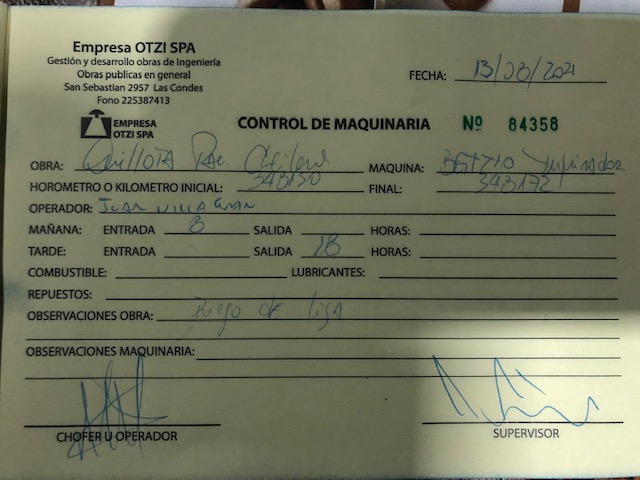 Empresa OTZI SPA
Gestión y desarrollo obras de Ingeniería
Obras publicas en general
San Sebastian 2957 Las Condes
Fono 225387413
FECHA: 13/08/2021
EMPRESA
OTZI SPA
CONTROL DE MAQUINARIA Nº 84358
OBRA: Quillota MAQUINA:
HOROMETRO O KILOMETRO INICIAL: 343130 FINAL: 343172
OPERADOR: JUAN VILLAGRAN
MAÑANA: ENTRADA 8 SALIDA HORAS:
TARDE: ENTRADA SALIDA 18 HORAS:
COMBUSTIBLE: LUBRICANTES:
REPUESTOS:
OBSERVACIONES OBRA: Riego de liga
OBSERVACIONES MAQUINARIA:
CHOFER U OPERADOR
SUPERVISOR